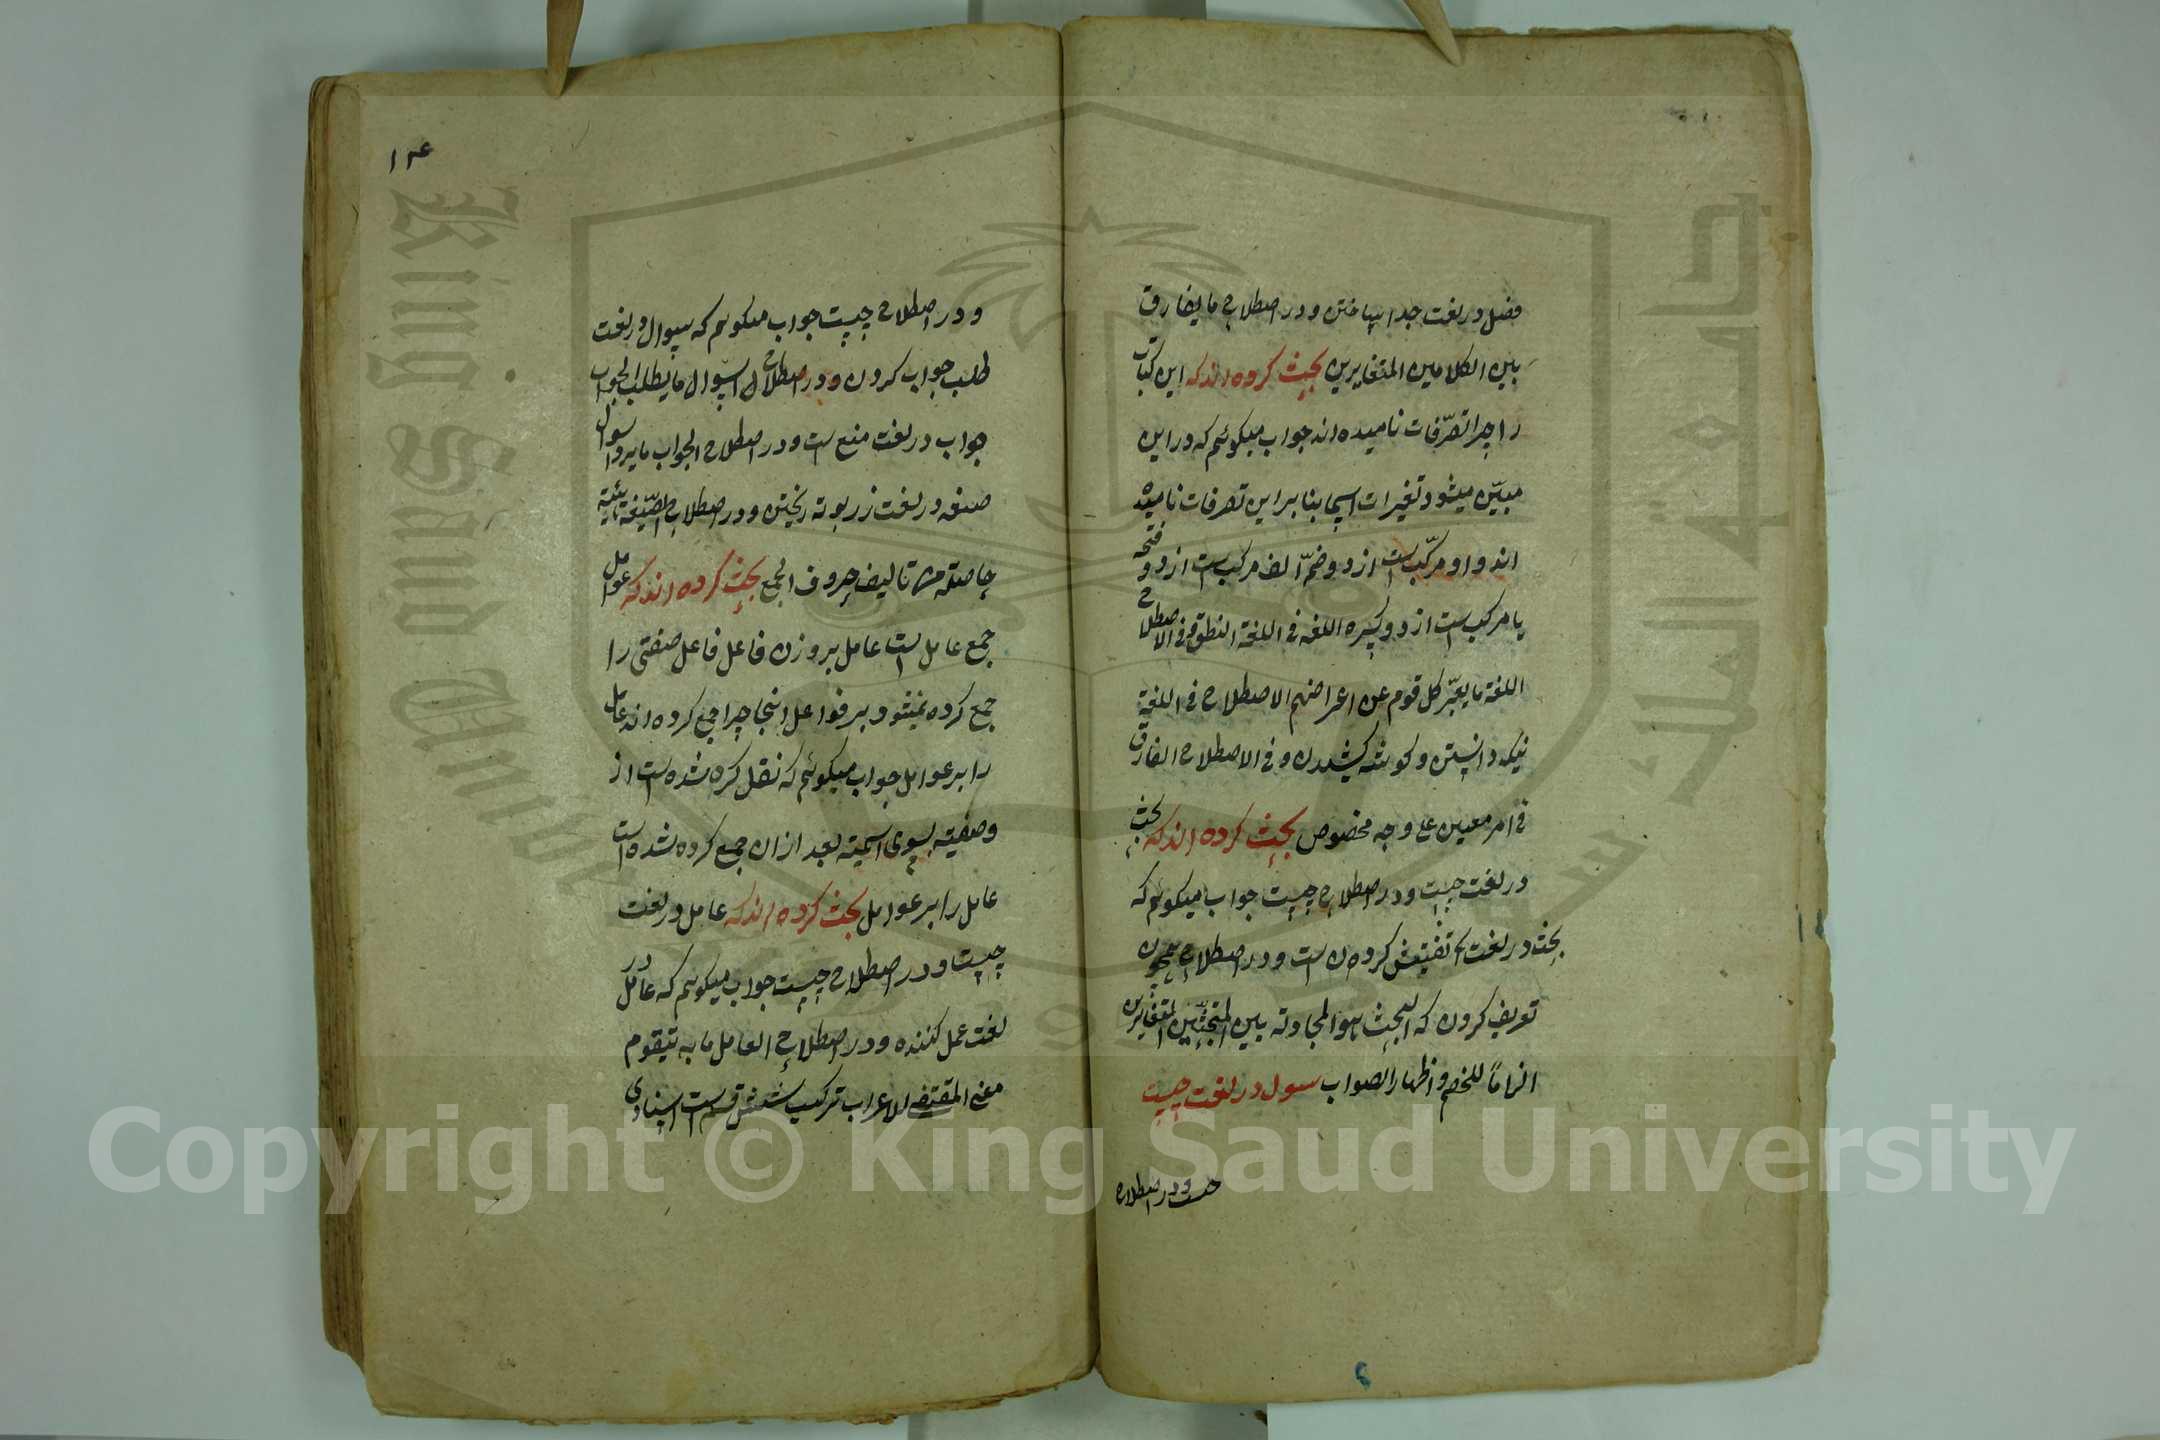 فصل در لغت جدا ساختن و در اصطلاح ما يفارق
بين الكلامين المتغايرين بحث كرده اند كه اين كتاب
را چرا تصرّفات ناميده اند جواب ميكوئيم كه در اين
مبيّن ميشود تغيرات اسما بنا بر اين تصرفات ناميده
اند واو مركّب است از دو ضمّ الف مركب است از دو فتحه و
يا مركب است از دو كسره اللغه فى اللغة النطق و فى الاصطلاح
اللغة ما يعبّر كل قوم عن اعراضهم الاصطلاح فى اللغة
نيك دانستن و كوشه كشيدن و فى الاصطلاح الفارق
فى امر معين على وجه مخصوص بحث كرده اند كه بحث
در لغت چيست و در اصطلاح چيست جواب ميكوئيم كه
بحث در لغت تفتيش كردن است و در اصطلاح همچون
تعريف كردن كه البحث هو المجادثه بين المتجثين المتغايرين
الزاماً للخصم و اظهار الصواب سول در لغت چيست
چيست و در اصطلاح
١٣٤
و در اصطلاح چيست جواب ميكوئيم كه سوال در لغت
طلب جواب كردن و در اصطلاح السوال ما يطلب الجواب
جواب در لغت منع است و در اصطلاح الجواب ما يرد السوال
صيغه در لغت زر بوته ريختن و در اصطلاح الصيغة هيئة
حاصلة من تاليف حروف الجمع بحث كرده اند كه عوامل
جمع عامل است عامل بر وزن فاعل فاعل صفتى را
جمع كرده نميشود بر فواعل اينجا چرا جمع كرده اند عامل
را بر عوامل جواب ميكوئيم كه نقل كرده شده است از
وصفيته بسوى اسميته بعد از ان جمع كرده شده است
عامل را بر عوامل بحث كرده اند كه عامل در لغت
چيست و در اصطلاح چيست جواب ميكوئيم كه عامل در
لغت عمل كننده و در اصطلاح العامل ما به يتقوم
معنى المقتضى للاعراب تركيب شش قسم است اسنادى
Copyright © King Saud University
King Saud Univer